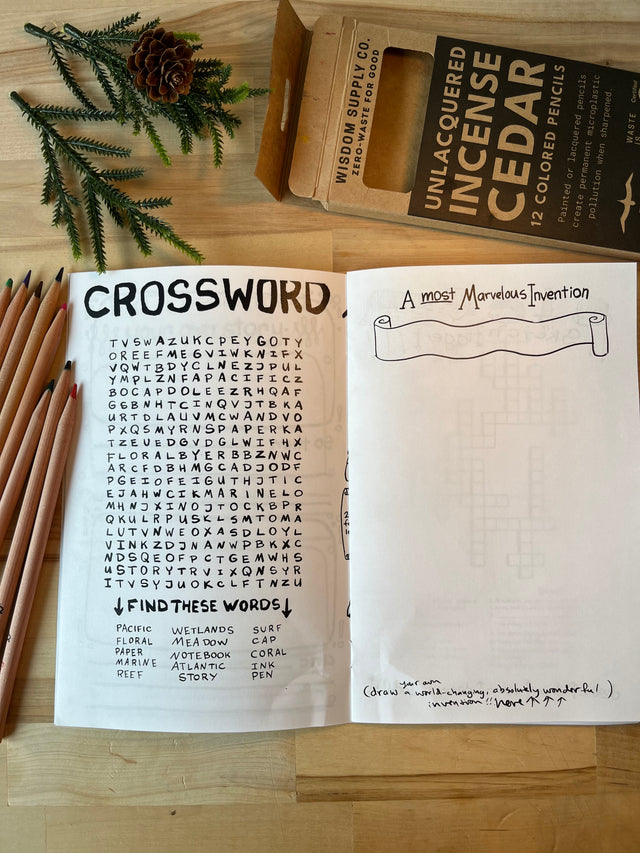 WISDOM SUPPLY CO.
ZERO-WASTE FOR GOOD
UNLACQUERED
INCENSE
CEDAR
12 COLORED PENCILS
Painted or lacquered pencils
create permanent microplastic
pollution when sharpened.
WASTE
IS
CROSSWORD
T V S W A Z U K C P E Y G O T Y
O R E E F M E G V I W K N I F X
V Q W T B D Y C L N E Z J P U L
Y M P L Z N F A P A C I F I C Z
B O C A P D O L E E Z R H Q A F
G G B N H T C I N Q V J T B K A
U R T D L A U V M C W A N D V O
P X Q S M Y R N S P A P E R K A
T Z E U E D G V D G L W I F H X
F L O R A L B Y E R B B Z N W C
A R C F D B H M G C A D J O D F
P G E I O F E I G U T H J T I C
E J A H W C I K M A R I N E L O
M H N J X I N O J T O C K B P R
Q K U L R P U S K L S M T O M A
L U T V N W E O X A S D L O Y L
V I N K Z D J N A N W P B K X C
N D S Q E O F P C T G E M W H S
U S T O R Y T R V I X Q N S Y R
I T V S Y J U O K C L F T N Z U
↓FIND THESE WORDS↓
PACIFIC WETLANDS SURF
FLORAL MEADOW CAP
PAPER NOTEBOOK CORAL
MARINE ATLANTIC INK
REEF STORY PEN
A most Marvelous Invention
your own
(draw a world-changing, absolutely wonderful )
invention!! here ↑ ↑ ↑